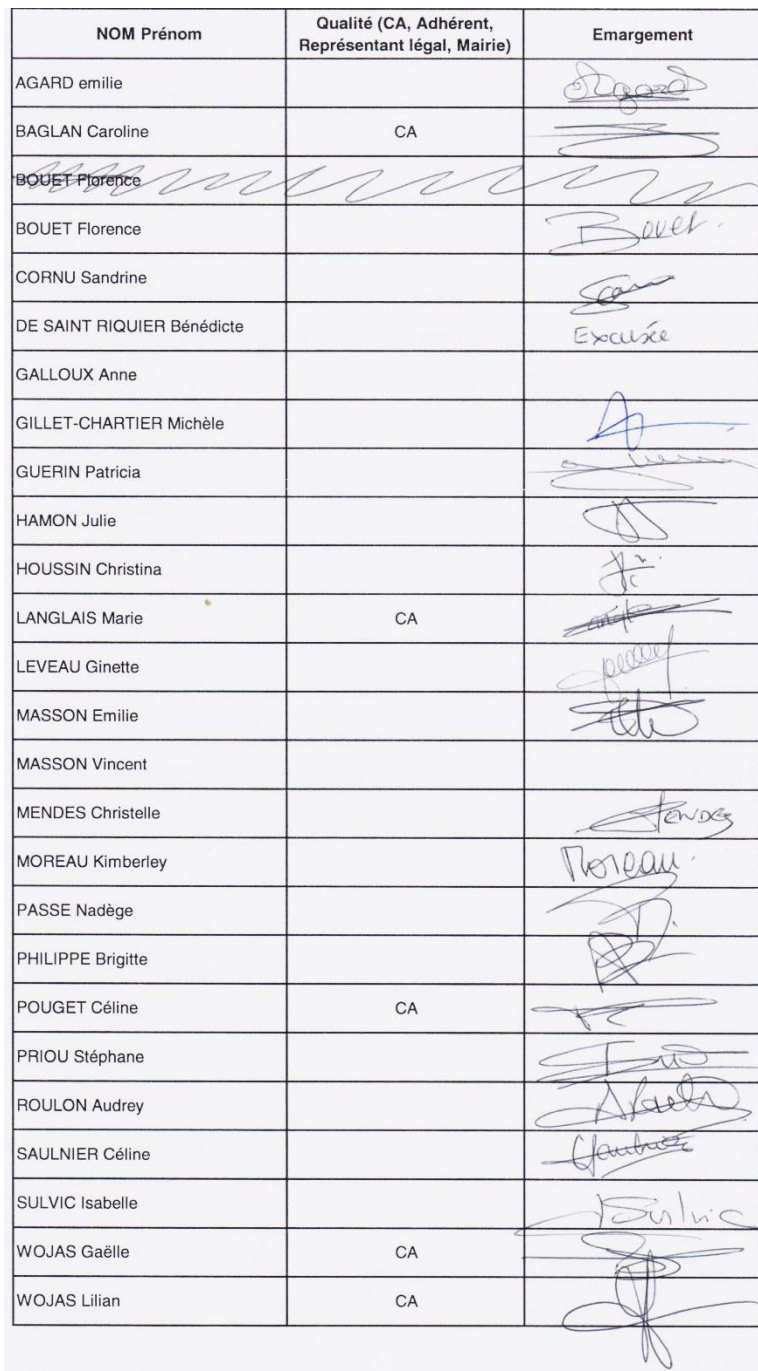 NOM Prénom
Qualité (CA, Adhérent,
Représentant légal, Mairie)
Emargement
AGARD emilie Agard
BAGLAN Caroline CA
BOUET Florence
BOUET Florence Bouet.
CORNU Sandrine
DE SAINT RIQUIER Bénédicte Excusée
GALLOUX Anne
GILLET-CHARTIER Michèle
GUERIN Patricia
HAMON Julie
HOUSSIN Christina
LANGLAIS Marie CA
LEVEAU Ginette
MASSON Emilie
MASSON Vincent
MENDES Christelle Mendes
MOREAU Kimberley Moreau.
PASSE Nadège
PHILIPPE Brigitte
POUGET Céline CA
PRIOU Stéphane
ROULON Audrey
SAULNIER Céline
SULVIC Isabelle Sulvic
WOJAS Gaëlle CA
WOJAS Lilian CA